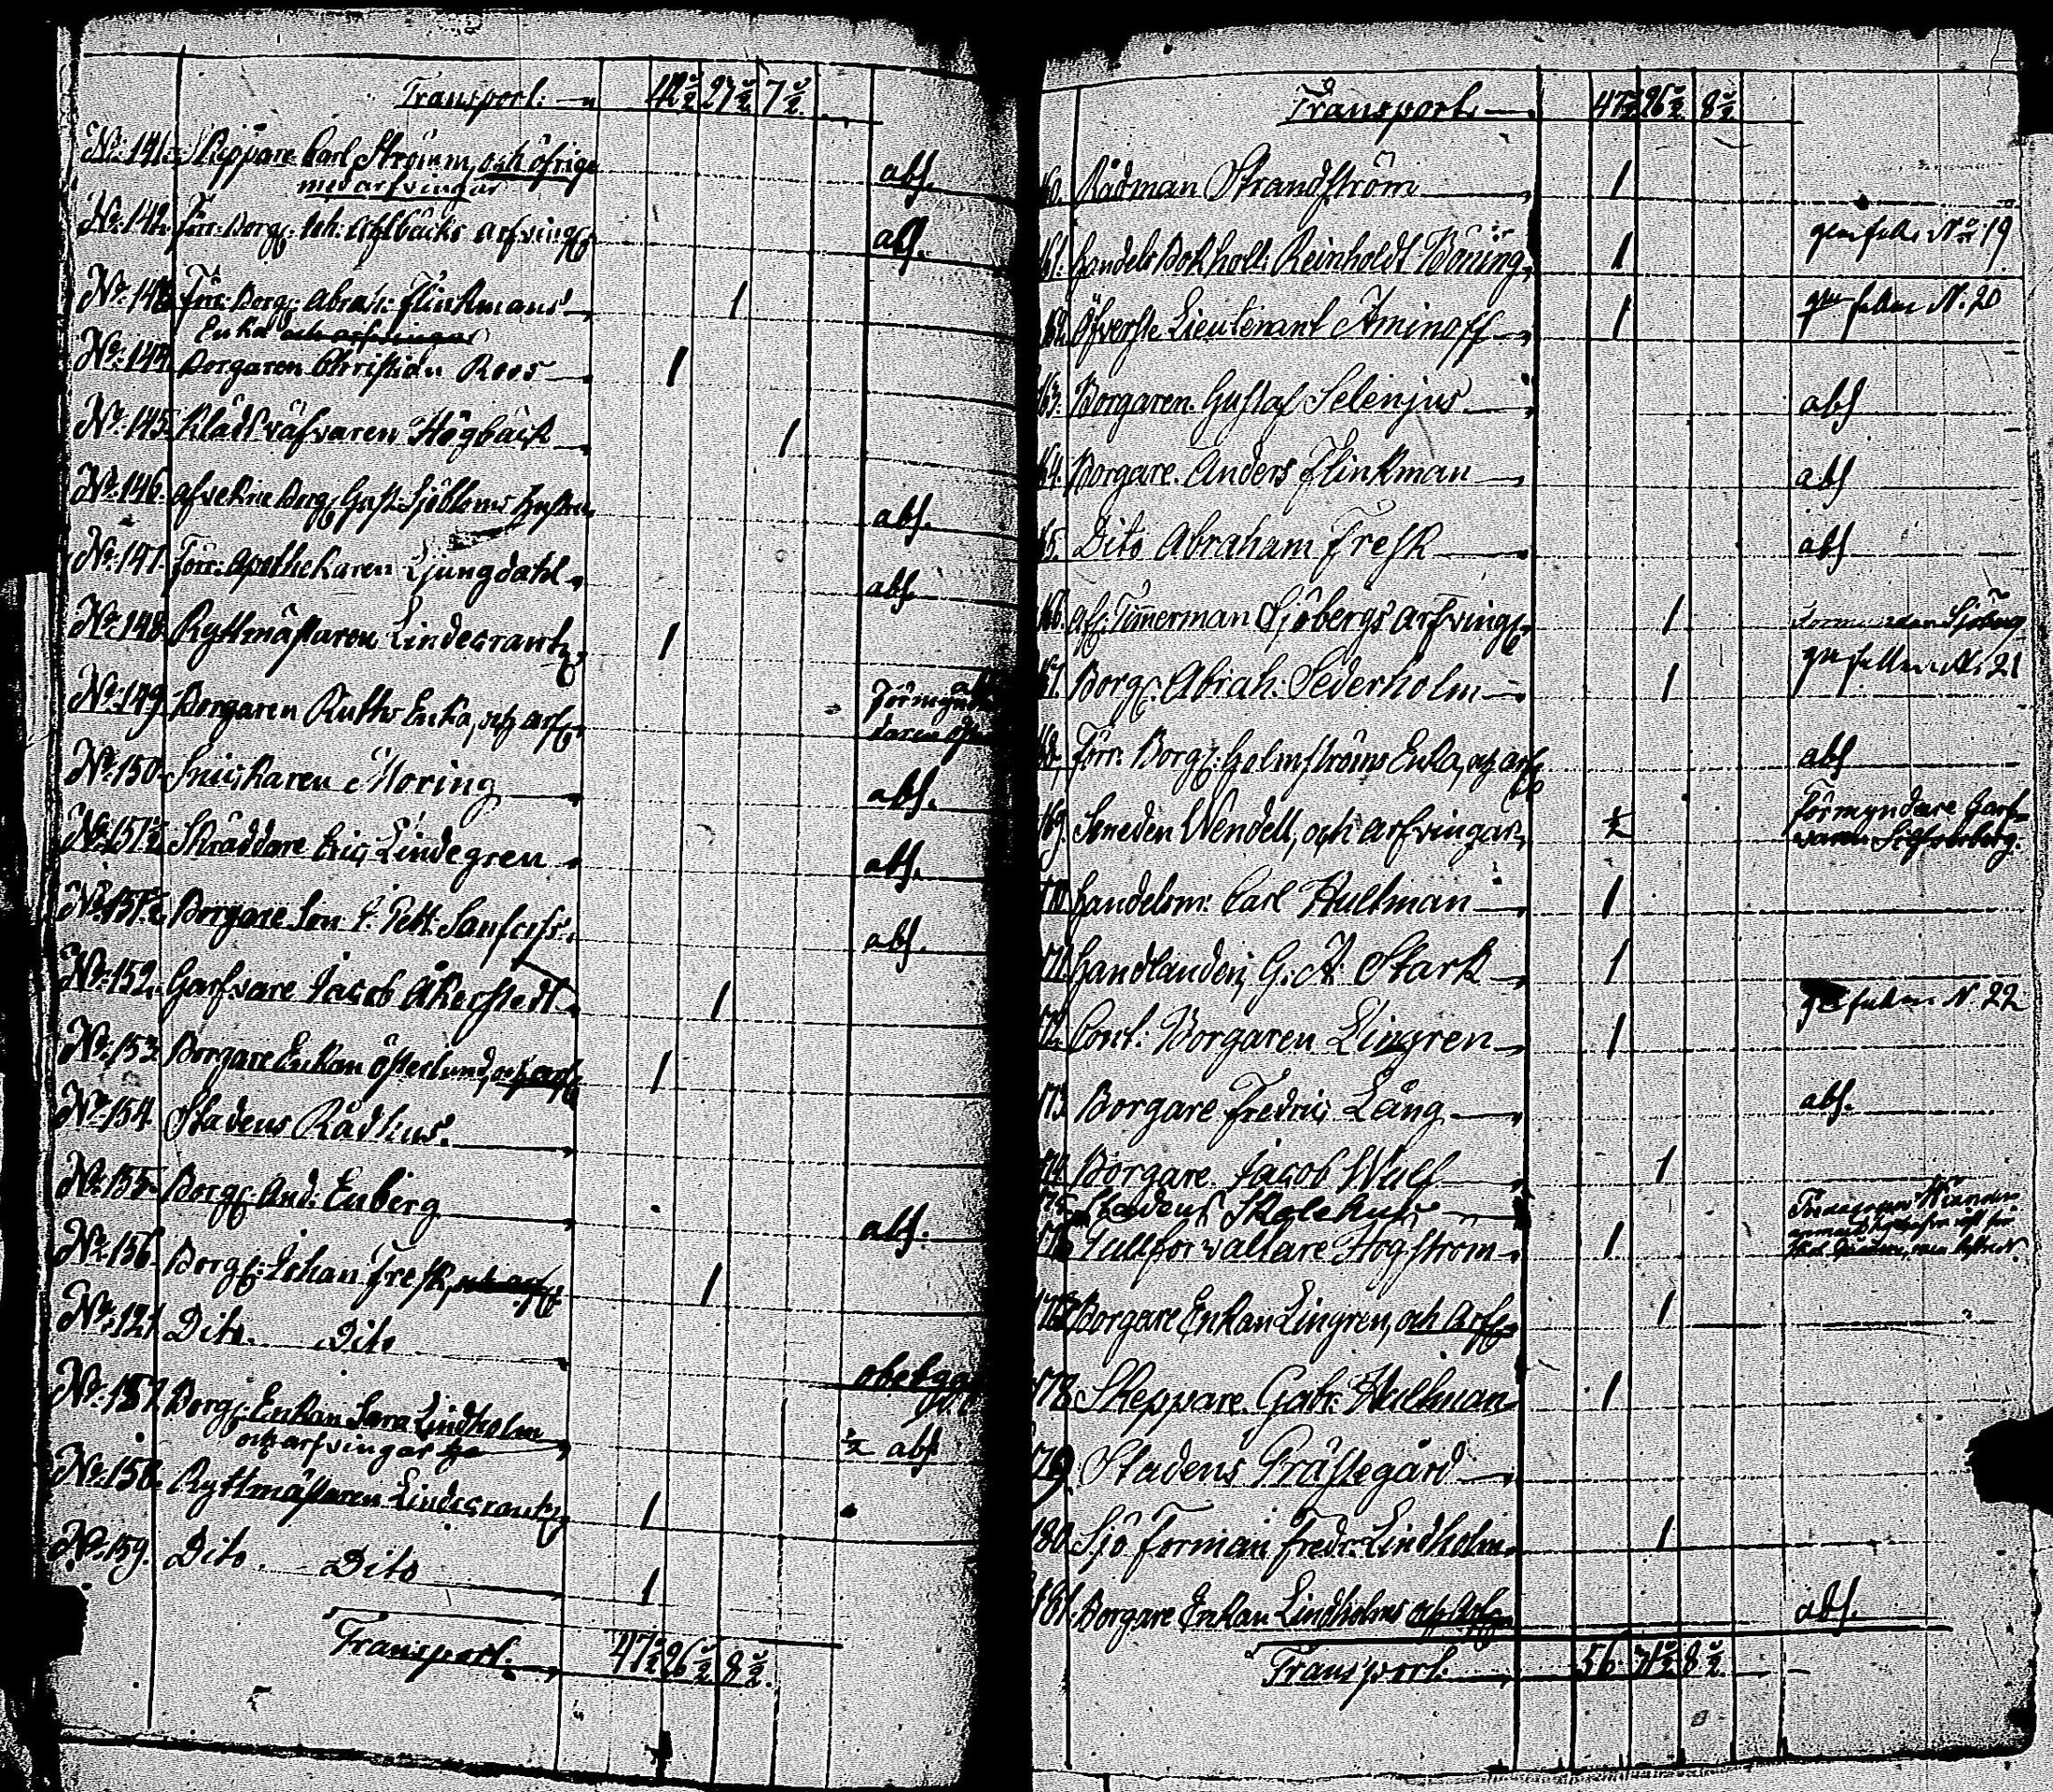 Transport. 42½ 27½ 7½
No. 141. Skeppare Carl Ström, och öfrige abs.
medarfvingar
No. 142. Förr: Borg: Joh: Ahlbäcks arfving: abs.
No. 143. Förr: Borg: Abrah: Flinkmans 1
Enka och arfvingar
No. 144. Borgaren Christian Roos 1
No. 145. Klädsväfvaren Högback 1
No. 146. Afvekne Borg: Gust: Sjöbloms Hustru abs.
No. 147. Förr: Apothekaren Ljungdahl abs.
No. 148. Ryttmästaren Lindecrantz 1
No. 149. Borgaren Ruths Enka, och arf: Förmyn
daren
No. 150. Snickaren Moring abs.
No. 151. Skräddare Eric Lindegren abs.
No. 151. Borgare Son P. Pett: abs.
No. 152. Garfvare Jacob Åkerstedt 1
No. 153. Borgare Enkan Österlund, och arf: 1
No. 154. Stadens Rådhus.
No. 155. Borg: And: Enberg abs.
No. 156. Borg: Johan Fresk, och arf: 1
No. 121. Dito. Dito obebygd
No. 157. Borg: Enkan Sara Lindholm
och arfvingar ½ abs
No. 158. Ryttmästaren Lindecrantz 1
No. 159. Dito. Dito 1
Transport. 47½ 26½ 8½
Transport. 47½ 26½ 8½
60. Rådman Strandström 1
61. Handels Bokhåll: Reinholdt Böning 1 No. 19
62. Öfverste Lieutenant Aminoff 1 N. 20
63. Borgaren Gustaf Selenjus abs
64. Borgare Anders Flinkman abs
65. Dito Abraham Fresk abs
66. Afl: Timmerman Sjöbergs arfving: 1 Sjöberg
67. Borg: Abrah: Sederholm 1 No. 21
68. Förr: Borg: Holmströms Enka, och arf: abs
69. Smeden Wendell, och arfvingar ½ Förmyndare Garf-
varen Silfverberg.
170. Handelsm: Carl Hultman 1
171. Handlanden G: A: Stark 1
172. Cont: Borgaren Lingren 1 N. 22
173. Borgare Fredric Lång abs.
174. Borgare Jacob Wulf 1
175. Stadens Skolehus
176. Tullförvaltare Högström 1
Borgare Enkan Lingren, och Arf: 1
178. Skeppare Gabr: Hultman 1
179. Stadens Prästegård
180. Sjö Forman Fredr: Lindholm 1
181. Borgare Enkan Lindholms och Arf: abs.
Transport. 56 8½